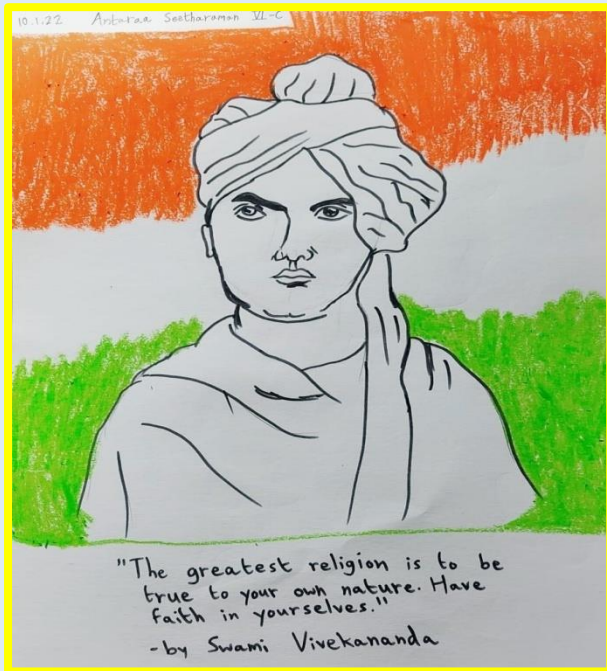 10.1.22 Antaraa Seetharaman VI-C
"The greatest religion is to be
true to your own nature. Have
faith in yourselves."
- by Swami Vivekananda